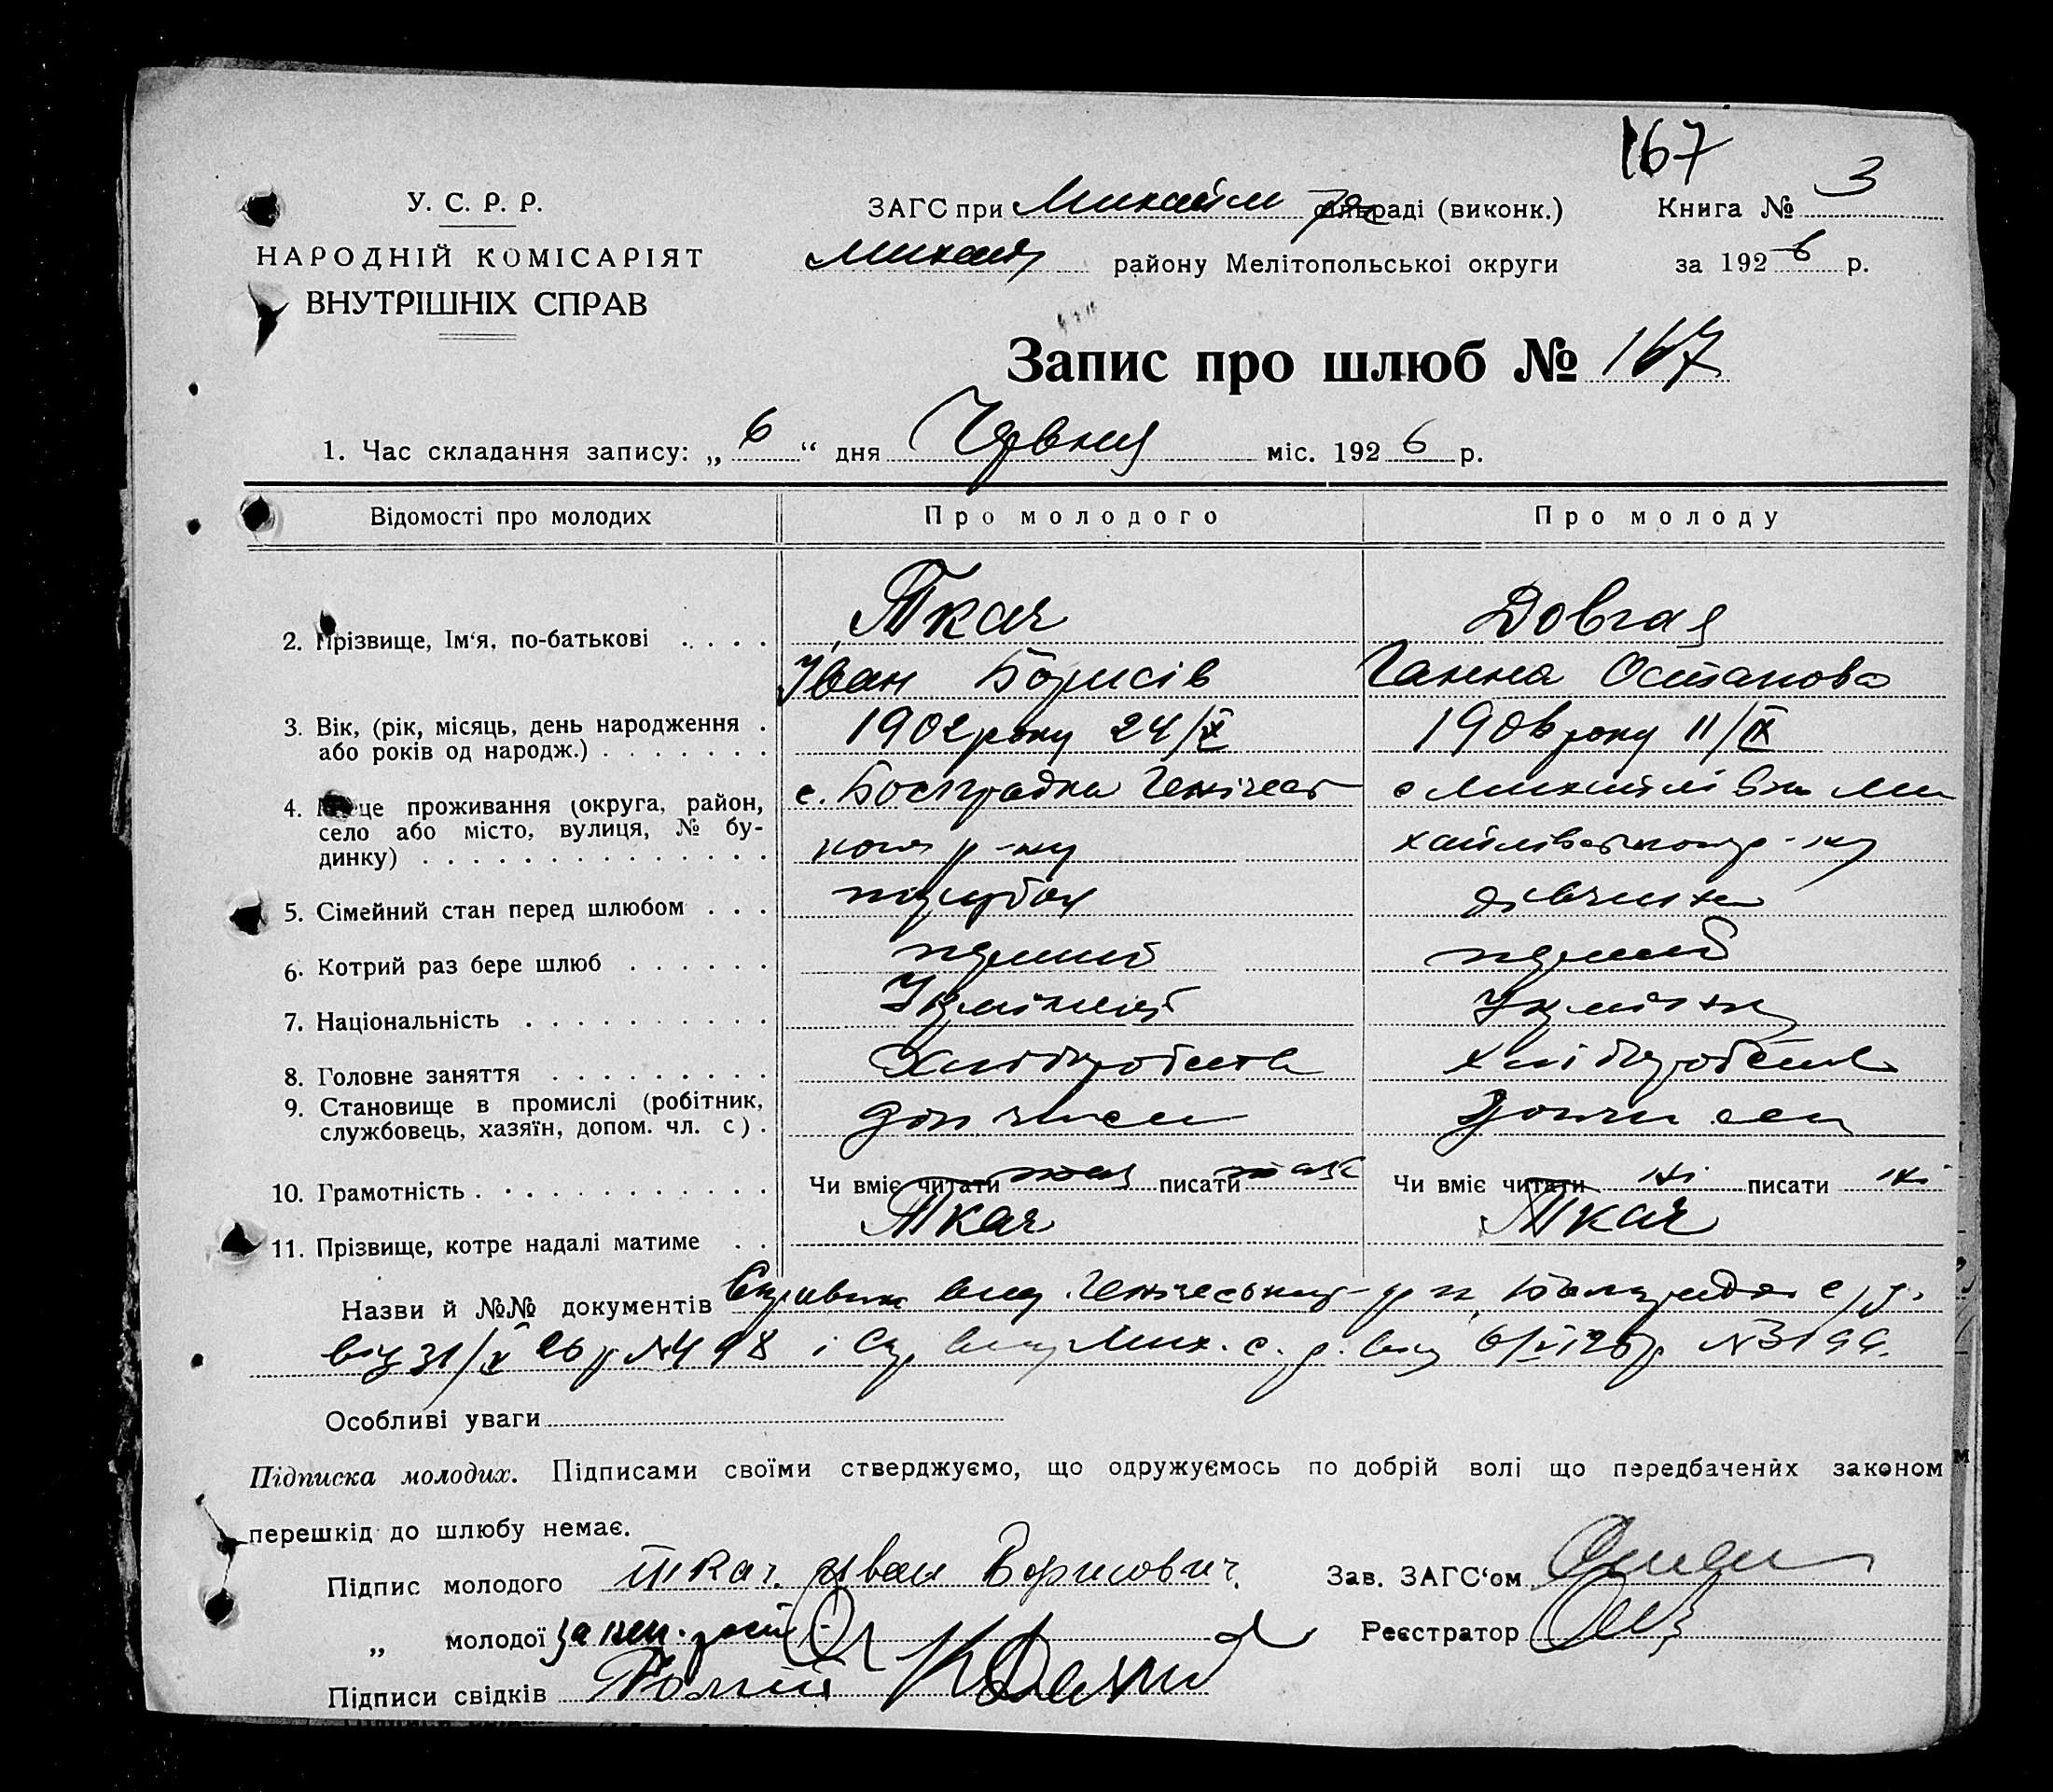 167
У. С. Р. Р.
НАРОДНІЙ КОМІСАРІЯТ
ВНУТРІШНІХ СПРАВ
ЗАГС при Михайл раді (виконк.) Книга № 3
Михайл району Мелітопольської округи за 1926 р.
Запис про шлюб № 167
1. Час складання запису: „ 6 “ дня Червня міс. 1926 р.
Відомості про молодих Про молодого Про молоду
2. Прізвище, Ім‘я, по-батькові . . . . Ткач Довгая
Іван Борисів Ганна Остапова
3. Вік, (рік, місяць, день народження . 1902 року 24/X 1906 року 11/IX
або років од народж.) . . . . . . .
4. Місце проживання (округа, район, с. Болградка Генічес с Михайлівки Ми
село або місто, вулиця, № бу-
динку) . . . . . . . . . . . . . . р-ну хайлівського р-ну
5. Сімейний стан перед шлюбом . . . парубок дівчина
6. Котрий раз бере шлюб . . . . . . перший перший
7. Національність . . . . . . . . . . Українець Українка
8. Головне заняття . . . . . . . . . Хліборобство хліборобство
9. Становище в промислі (робітник, доп член доп член
службовець, хазяїн, допом. чл. с) .
10. Грамотність . . . . . . . . . . . . Чи вміє читати так писати так Чи вміє читати ні писати ні
11. Прізвище, котре надалі матиме . . Ткач Ткач
Назви й №№ документів Справки вид. Генічеського р-н с/р.
від 31/V 26 р №498 і Мих. с. р. від 6/VI 26 р №3199.
Особливі уваги
Підписка молодих. Підписами своїми стверджуємо, що одружуємось по добрій волі що передбачених законом
перешкід до шлюбу немає.
Підпис молодого Ткач Іван Борисович. Зав. ЗАГС‘ом
„ молодої за неп. Реєстратор
Підписи свідків